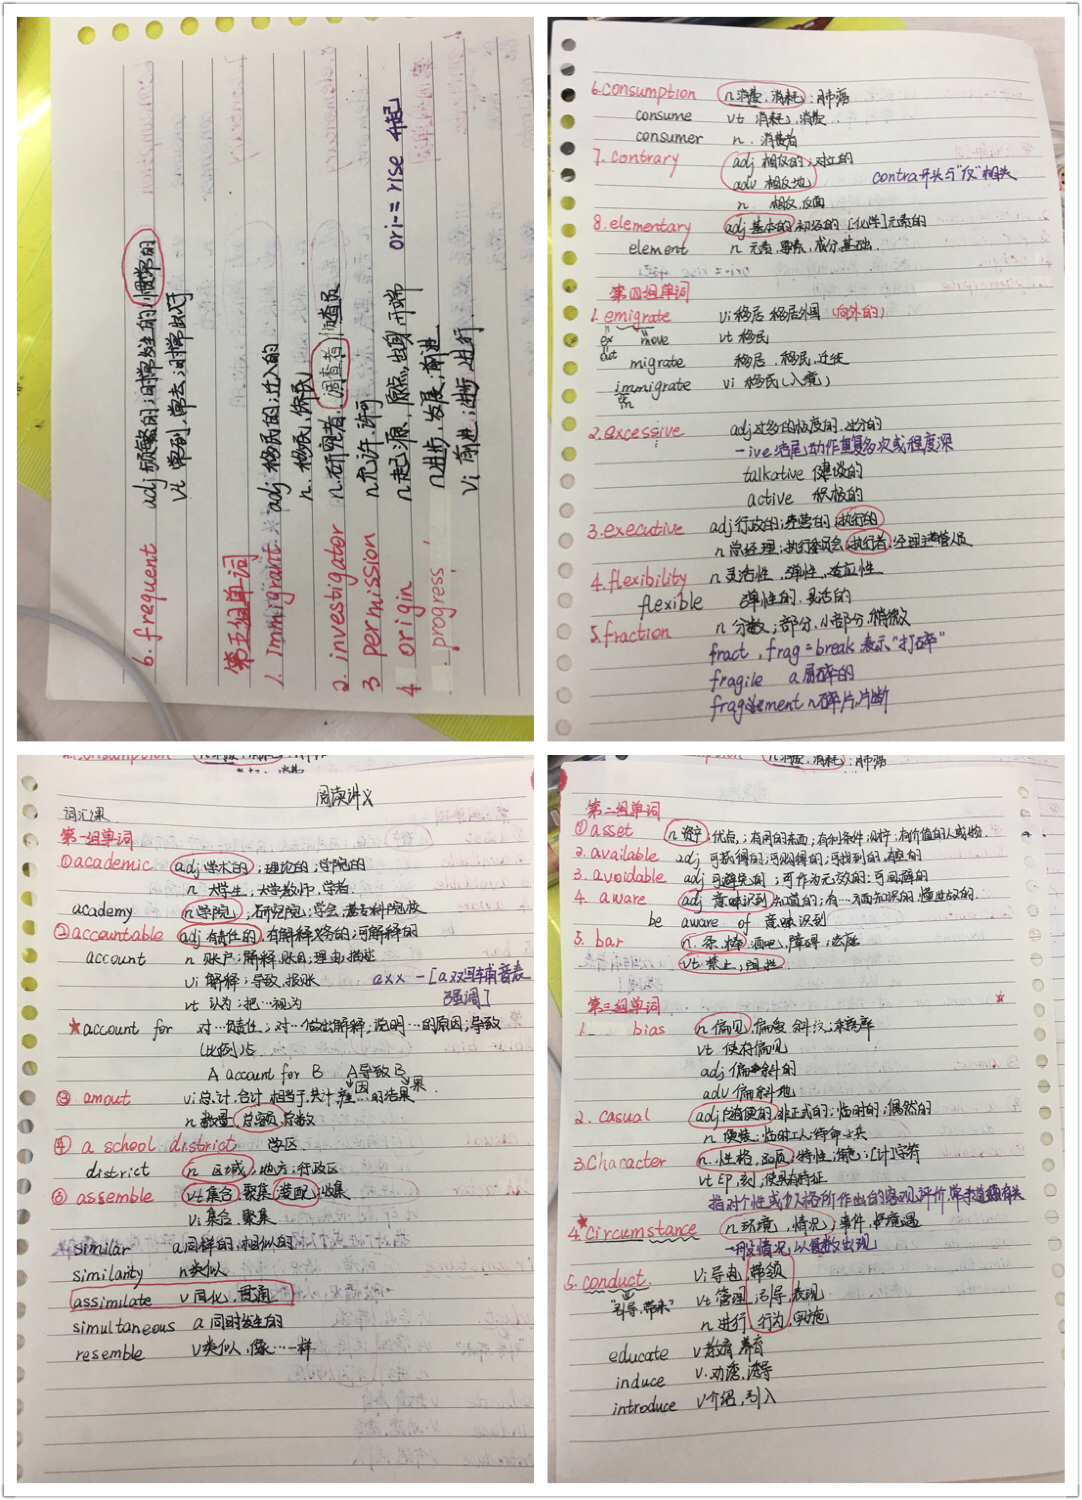 6. frequent adj 频繁的;时常发生的;惯常的
vt 常到,常去;时常出入于
第五组单词
1. Immigrant adj 移民的;迁入的
n. 移民,侨民
2. investigator n. 研究者;调查者;侦查员
3 permission n 允许,许可
4 origin n 起源,原点,出身,开端 ori-=rise 升起
progress n 进步,发展;前进
vi 前进;进步;进行
6.consumption n 消费,消耗;肺痨
consume vt 消耗,消费
consumer n. 消费者
7.contrary adj 相反的;对立的
adv 相反地 contra开头与“反”相关
n. 相反,反面
8.elementary adj 基本的 初级的 [化学]元素的
element n 元素,要素,成分,基础
第四组单词
1.emigrate vi 移居 移居外国 (向外的)
ex move vt 移民
out migrate 移居,移民,迁徙
immigrate vi 移民(入境)
in
2.excessive adj 过多的 极度的,过分的
-ive 结尾,动作重复多次或程度深
talkative 健谈的
active 积极的
3.executive adj行政的;经营的;执行的
n 总经理;执行委员会;执行者;经理主管人员
4.flexibility n 灵活性,弹性,适应性
flexible 弹性的,灵活的
5.fraction n 分数;部分,小部分,稍微
fract,frag=break 表示“打碎”
fragile a 易碎的
fragment n 碎片,片断
阅读讲义
词汇课
第一组单词
①academic adj 学术的;理论的;学院的
n 大学生,大学教师,学者
academy n 学院;研究院;学会
②accountable adj 有责任的,有解释义务的;可解释的
account n 账户;解释;账目,理由,描述
vi 解释;导致,报账 axx -[a双写辅音表
vt 认为;把…视为 强调]
★account for 对…负责任;对…做出解释,说明…的原因;导致
(比例)占
A account for B A导致B
因 果
③ amout vi 总计,合计 相当于,共计 …的结果
n 数量 总额,总数
④ a school district 学区
district n 区域,地方;行政区
⑤ assemble vt 集合,聚集 装配;收集
vi 集合,聚集
similar a 同样的,相似的
similarity n 类似
assimilate v 同化,贯通
simultaneous a 同时发生的
resemble v 类似,像…一样
第二组单词
①asset n 资产,优点;有用的东西;有利条件;财产;有价值的人或物.
2. available adj 可获得的;可购得的;可找到的,有空的
3. avoidable adj 可避免的;可作为无效的;可回避的
4. aware adj 意识到 知道的;有…方面知识的,懂世故的.
be aware of 意识到
5. bar n. 条,棒,酒吧,障碍;法庭
vt 禁止,阻拦
第三组单词
1. bias n 偏见,偏爱 斜纹;乖离率
vt 使存偏见
adj 偏斜的
adv 偏斜地
2. casual adj随便的,非正式的;临时的;偶然的
n 便装;临时工人;待命士兵
3.Character n. 性格,品质,特性;角色;[计]字符
vt 印,刻;使具有特征
指对个性或人格所作出的客观评价,常与道德有关
★4.Circumstance n 环境,情况;事件,境遇
一般情况,以复数出现
5. conduct. vi 导电,带领
“引导,带来” vt 管理 引导 表现
n 进行 行为,实施
educate v 教育 养育
induce v.劝诱,诱导
introduce v 介绍,引入